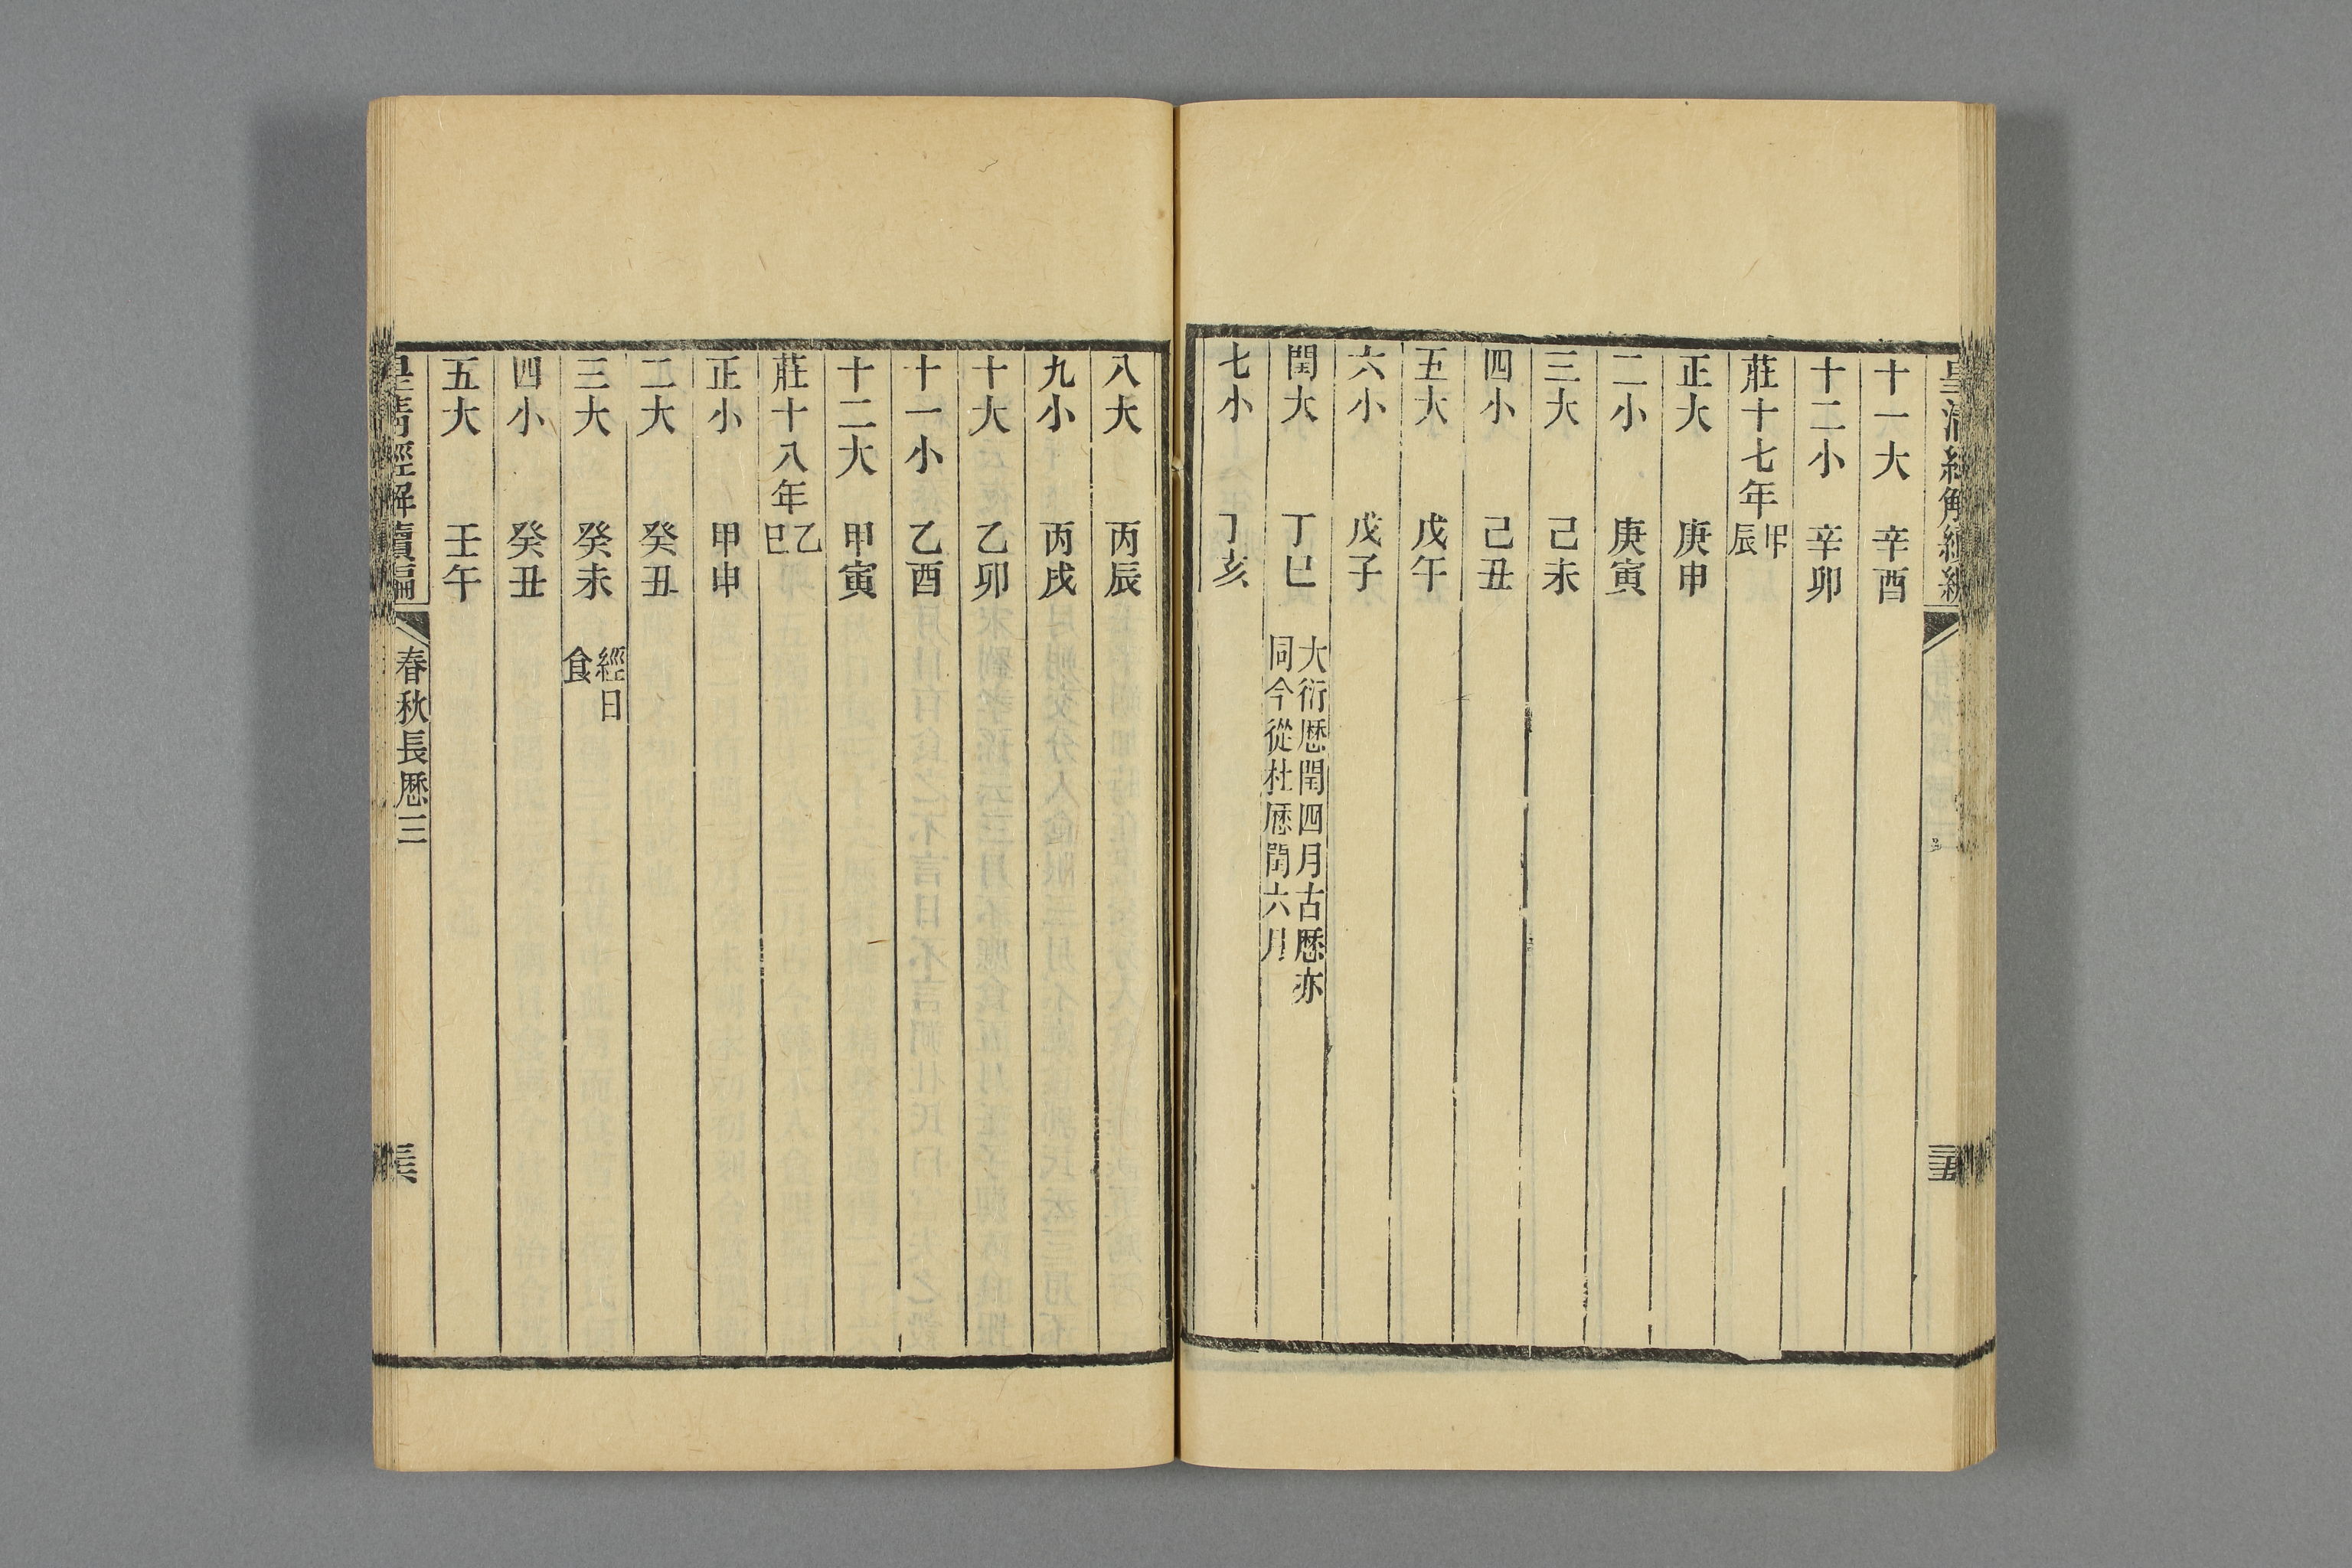 十一大 辛酉
十二小 辛卯
莊十七年 甲辰
正大 庚申
二小 庚寅
三大 己未
四小 己丑
五大 戊午
六小 戊子
閏大 丁巳 大衍厯閏四月古厯亦
同今從杜厯閏六月
七小 丁亥
八大 丙辰
九小 丙戌
十大 乙卯
十一小 乙酉
十二大 甲寅
莊十八年 乙巳
正小 甲申
二大 癸丑
三大 癸未 經日
食
四小 癸丑
五大 壬午
皇清經解續編 春秋長厯三